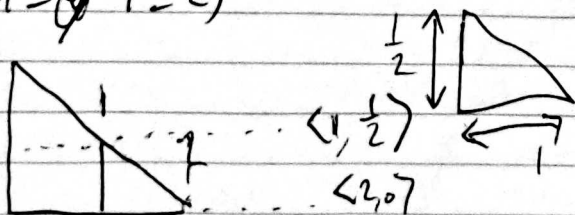 1/2
1
⟨1, 1/2⟩
1
2
⟨2,0⟩